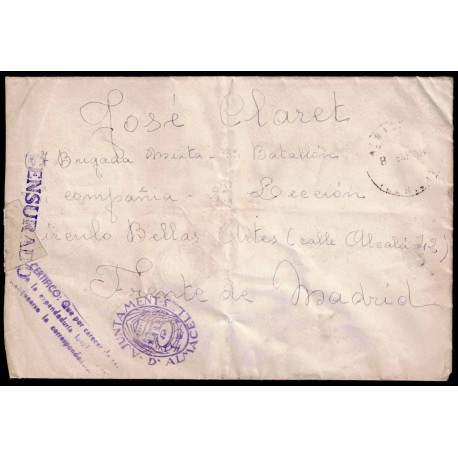 José Claret
Brigada Mixta - 3º Batallón
compañia - 2ª Sección
Circulo Bellas Artes (calle Alcalá 42)
Frente de Madrid
CENSURADO
CERTIFICO: Que por carecer de
la expendeduría local
la correspondencia
AJUNTAMENT D'ALMACELL
8